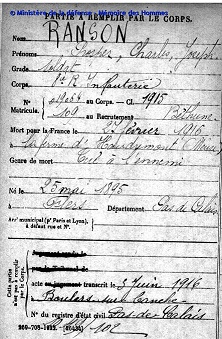 © Ministère de la défense - Mémoire des Hommes
PARTIE À REMPLIR PAR LE CORPS.
Nom RANSON
Prénoms Prosper, Charles, Joseph
Grade Soldat
Corps Infanterie
N° au Corps. — Cl. 1915
Matricule. 109 au Recrutement Béthune
Mort pour la France le février 1916
à la ferme d'Haudromont (Meuse)
Genre de mort Tué à l'ennemi
Né le 25 mai 1895
à Département Pas de Calais
Arr' municipal (p' Paris et Lyon),
à défaut rue et N°.
Cette partie
n'est pas à remplir
par le Corps.
acte transcrit le 3 juin 1916
à Boubers sur Canche
Pas-de-Calais
N° du registre d'état civil
102